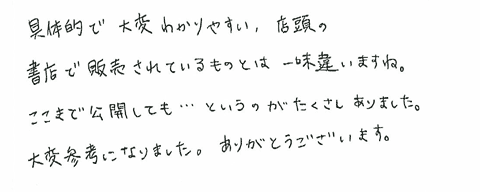 具体的で大変わかりやすい，店頭の
書店で販売されているものとは一味違いますね。
ここまで公開しても…というのがたくさんありました。
大変参考になりました。ありがとうございます。